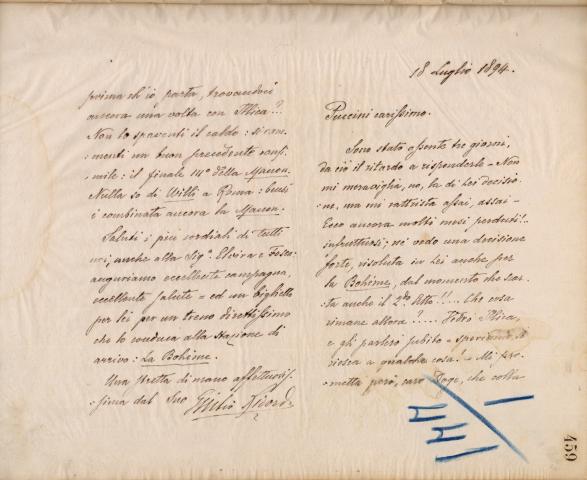 18 Luglio 1894.
Puccini carissimo.
Sono stato assente tre giorni,
da ciò il ritardo a risponderle - Non
mi meraviglia, no, la di Lei decisio=
=ne, ma mi rattrista assai, assai -
Ecco ancora molti mesi perduti!..
infruttuosi; nè vedo una decisione
forte, risoluta in Lei anche per
la Bohème, dal momento che scar=
ta anche il 2do Atto!!.... Che cosa
rimane allora?.... Vedrò Illica,
e gli parlerò subito - speriamo
riesca a qualche cosa! - Mi pro=
metta però, caro Doge, che
prima ch'io parta, trovandoci
ancora una volta con Illica?..
Non lo spaventi il caldo: si ram=
menti un buon precedente consi=
mile: il finale IIIo della Manon.
Nulla so di Willi a Roma: bensì
è combinata ancora la Manon.
Saluti i più cordiali di tutti
noi, anche alla Siga Elvira e Fosca:
auguriamo eccellente campagna,
eccellente salute = ed un biglietto
per lei per un treno direttissimo
che lo conduca alla stazione di
arrivo: La Bohème.
Una stretta di mano affettuosis=
=sima dal Suo Giulio Ricordi
1
459